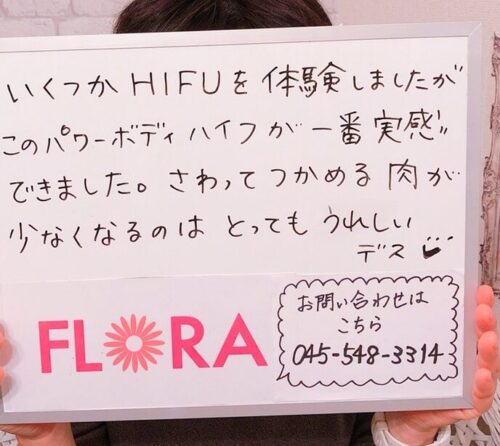 いくつかHIFUを体験しましたが
このパワーボディハイフが一番実感!!
できました。さわってつかめる肉が
少なくなるのは とっても うれしい...
デス
FLORA
お問い合わせは
こちら
045-548-3314